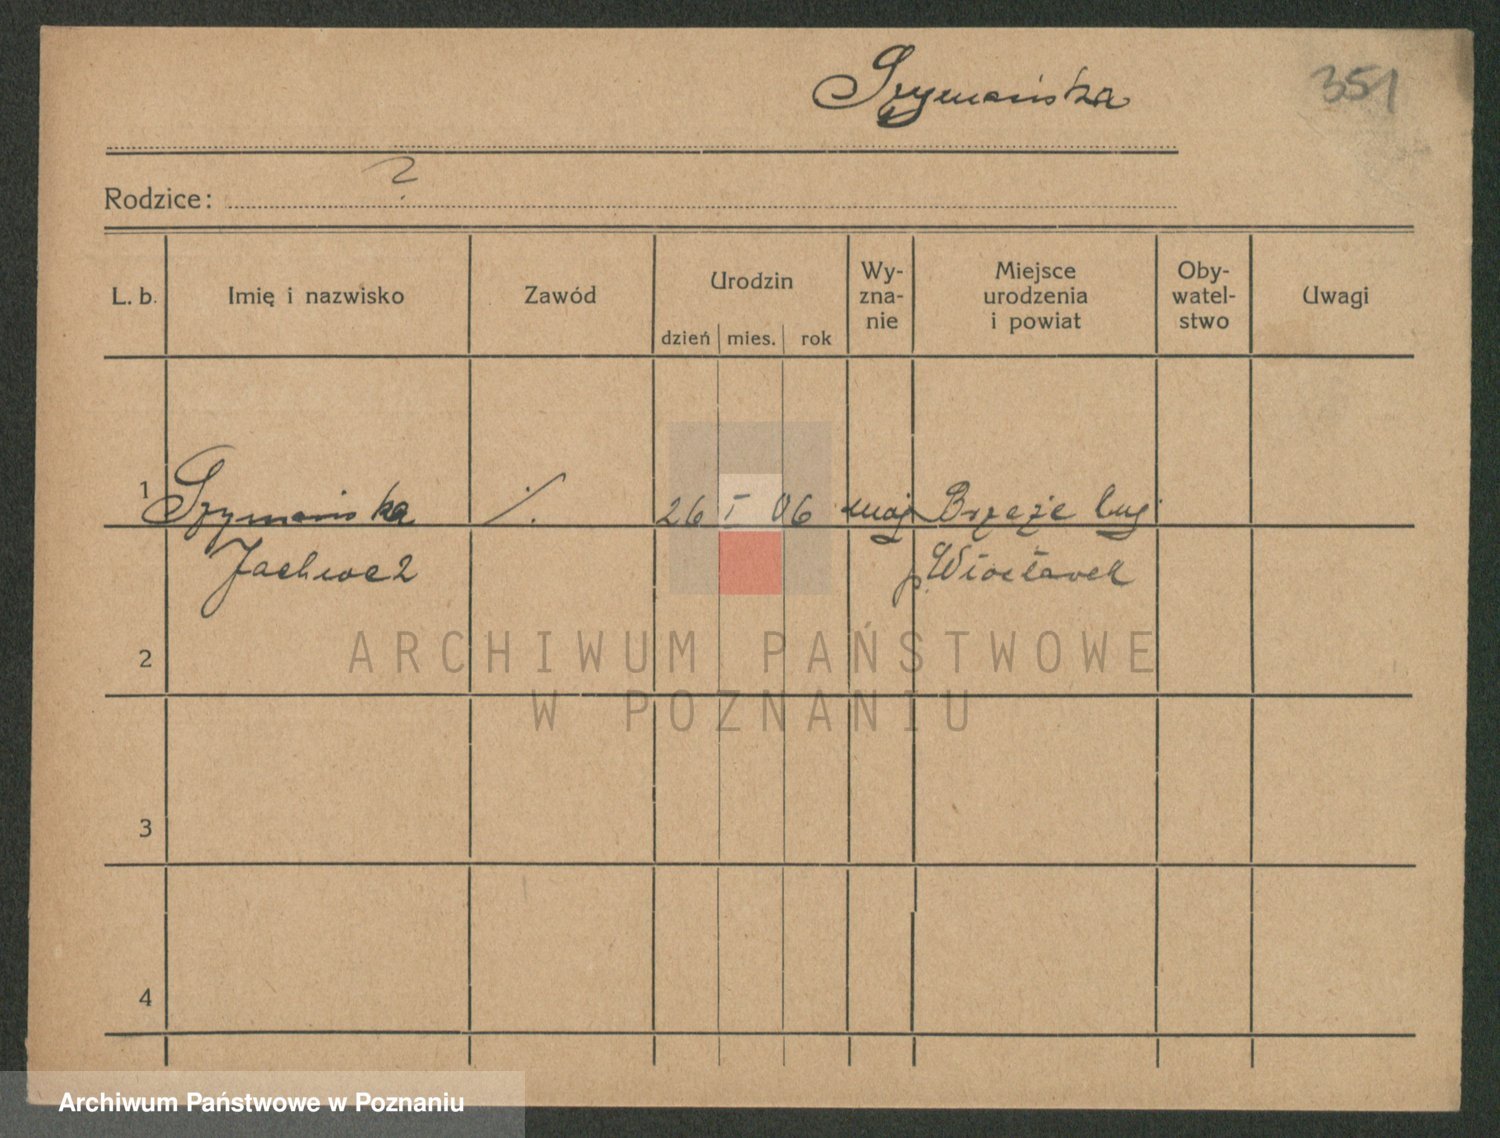 Szymańska
351
Rodzice: ?
L. b. Imię i nazwisko Zawód Urodzin dzień mies. rok Wy-zna-nie Miejsce urodzenia i powiat Oby-watel-stwo Uwagi
1 Szymańska ./. 26 I 06 Brzezie
p. Włocławek
2
3
4
ARCHIWUM PAŃSTWOWE
W POZNANIU
Archiwum Państwowe w Poznaniu